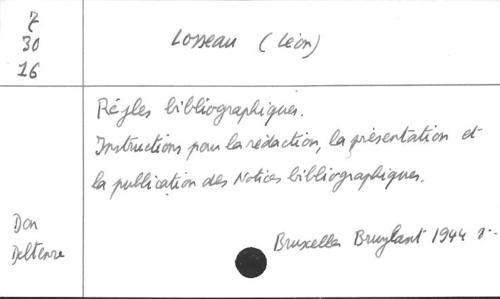 7
30
16
Losseau (Léon)
Règles bibliographiques.
Instructions pour la rédaction, la présentation et
la publication des Notices bibliographiques.
Don
Deltenre
Bruxelles Bruylant 1944